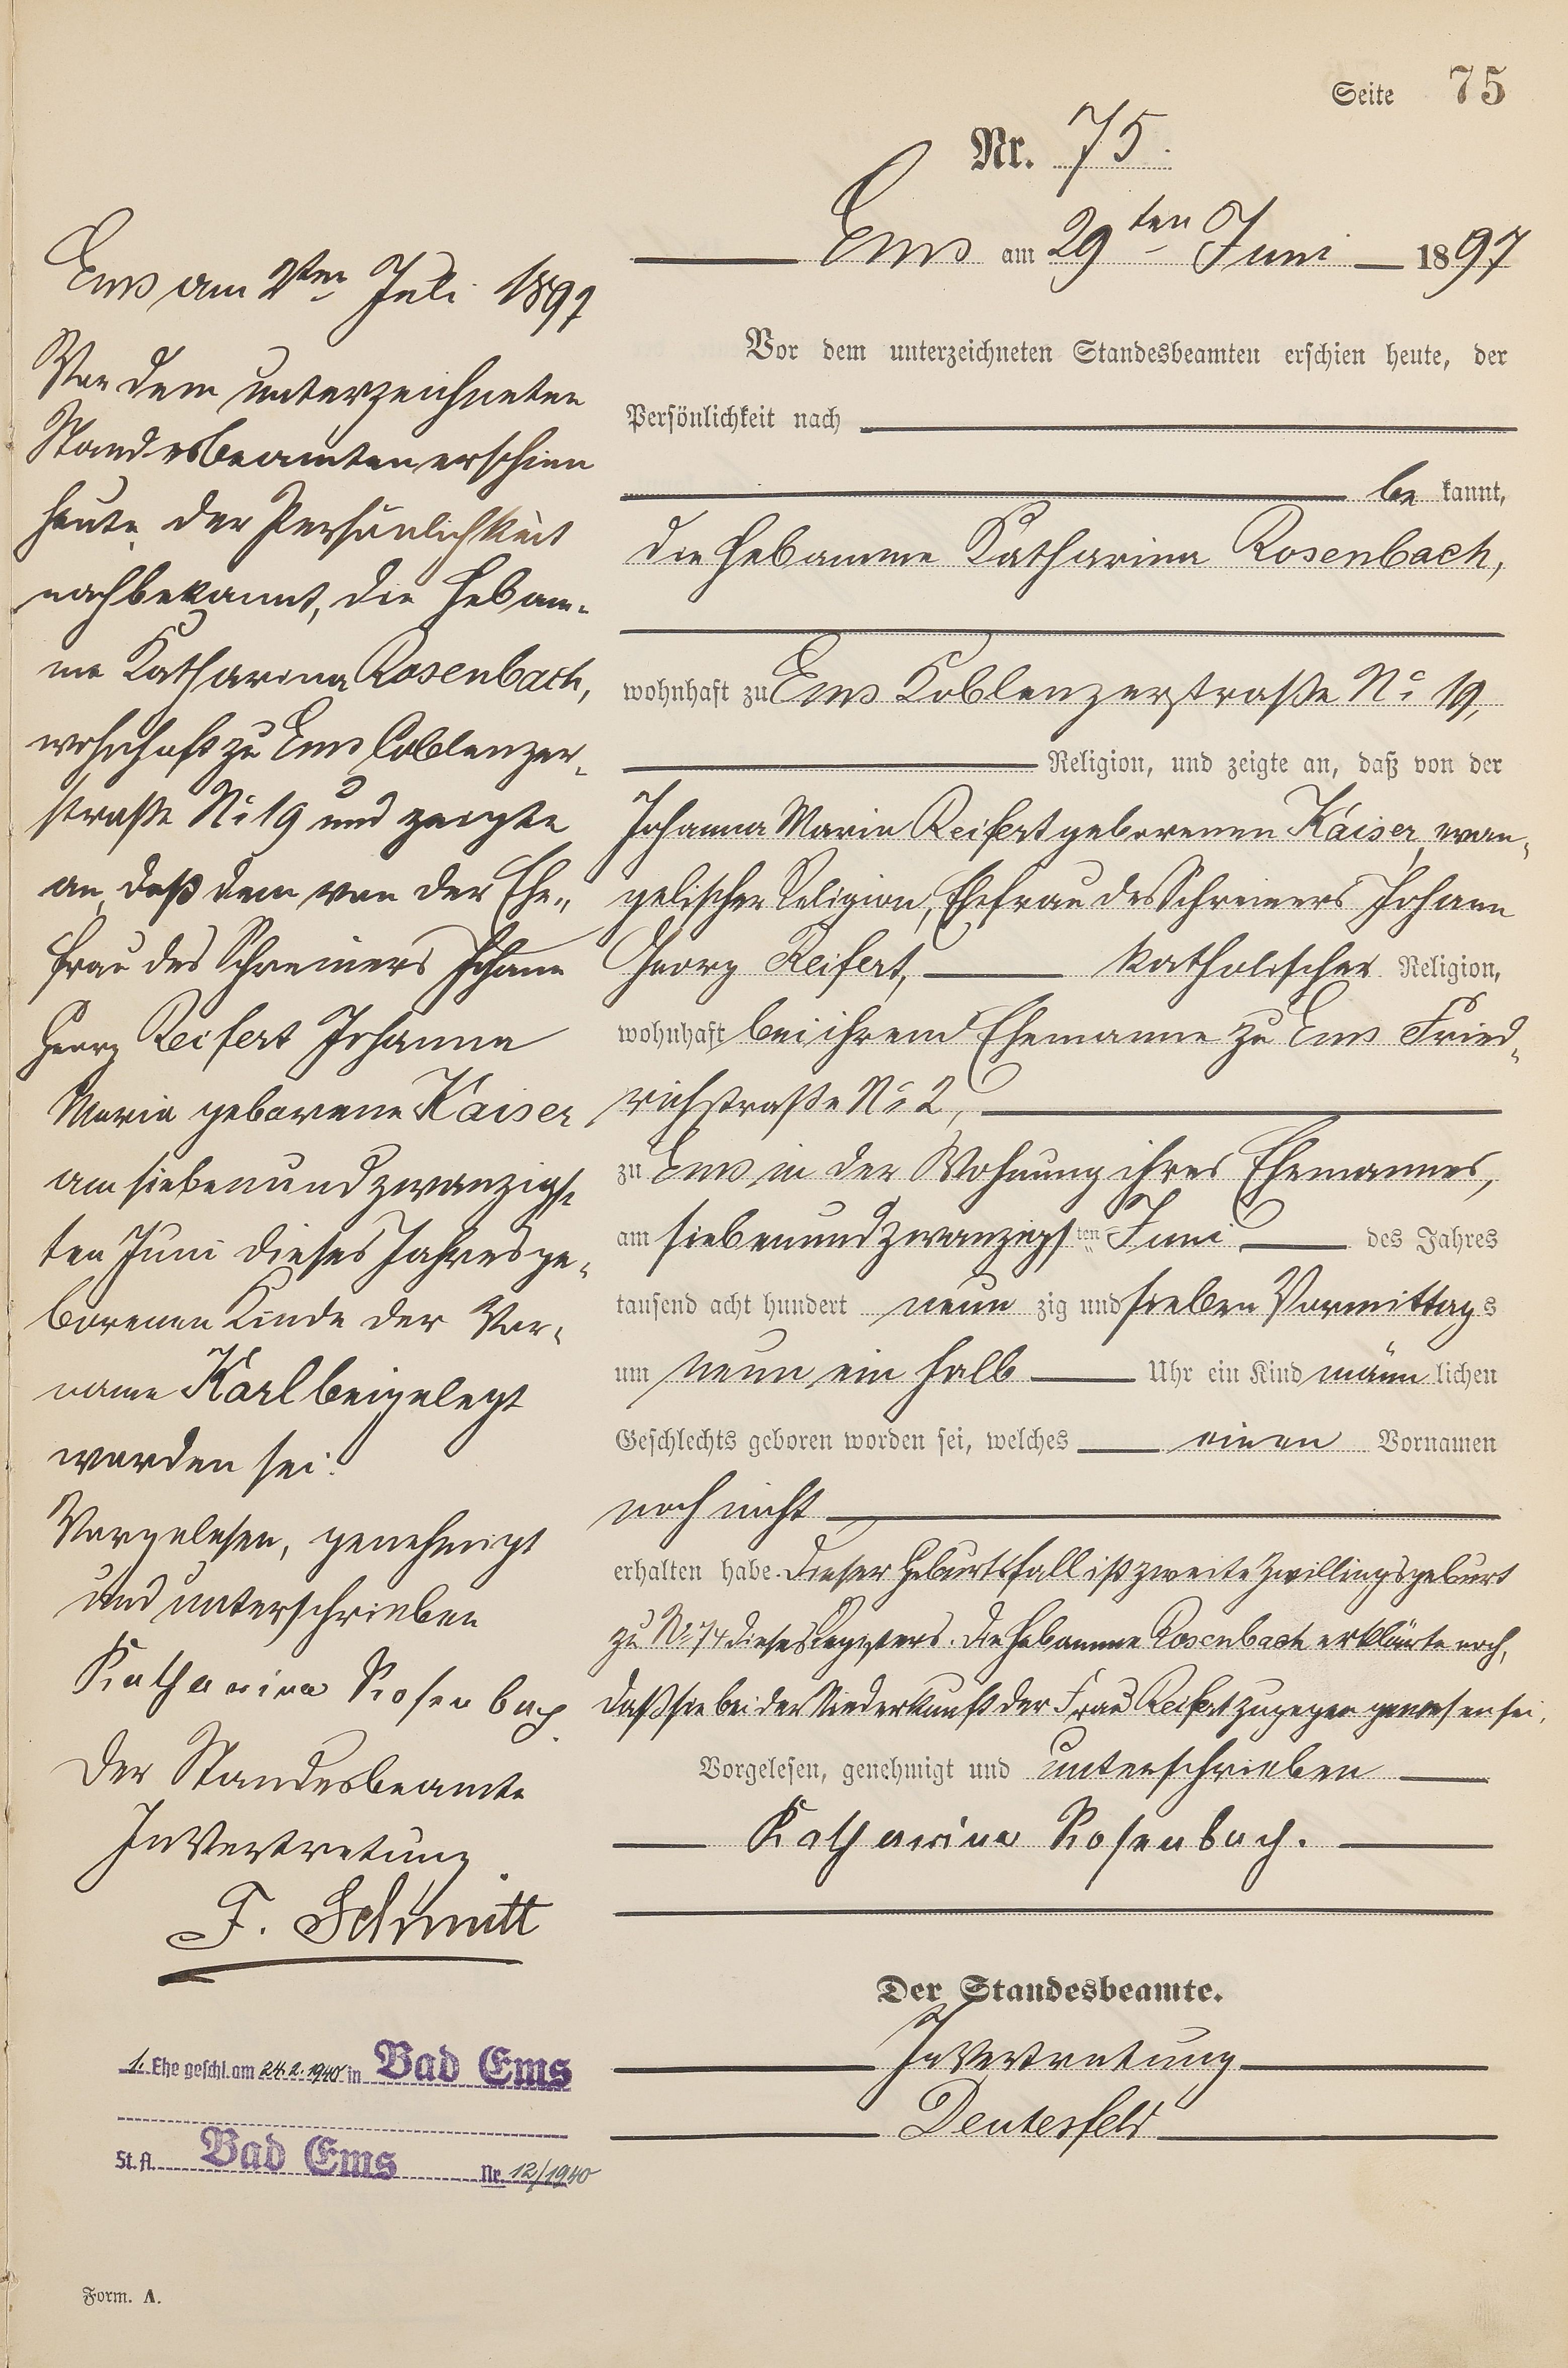 Seite 75
Nr. 75.
Ems am 29ten Juni 1897
Vor dem unterzeichneten Standesbeamten erschien heute, der
Persönlichkeit nach
be kannt,
die Hebamme Katharina Rosenbach,
wohnhaft zu Ems Coblenzerstraße No 19,
Religion, und zeigte an, daß von der
Johanna Maria Reifert geborenen Kaiser, evan-
gelischer Religion, Ehefrau des Schreiners Johann
Georg Reifert, katholischer Religion,
wohnhaft bei ihrem Ehemanne zu Ems Fried-
richstraße No 2,
zu Ems in der Wohnung ihres Ehemannes,
am siebenundzwanzigsten Juni des Jahres
tausend acht hundert neun zig und sieben Vormittags
um neun ein halb Uhr ein Kind männ lichen
Geschlechts geboren worden sei, welches einen Vornamen
noch nicht
erhalten habe. Dieser Geburtsfall ist zweite Zwillingsgeburt
zu No 74 dieses Registers. Die Hebamme Rosenbach erklärte noch,
daß sie bei der Niederkunft der Frau Reifert zugegen gewesen sei.
Vorgelesen, genehmigt und unterschrieben
Katharina Rosenbach.
Der Standesbeamte.
In Vertretung
Deutesfeld
Ems am 2ten Juli 1897
Vor dem unterzeichneten
Standesbeamten erschien
heute, der Persönlichkeit
nach bekannt, die Hebam-
me Katharina Rosenbach,
wohnhaft zu Ems Coblenzer-
straße No 19 und zeigte
an, daß dem von der Ehe-
frau des Schreiners Johann
Georg Reifert Johanna
Maria geborene Kaiser
am siebenundzwanzigs-
ten Juni dieses Jahres ge-
borenen Kinde der Vor-
name Karl beigelegt
worden sei.
Vorgelesen, genehmigt
und unterschrieben
Katharina Rosenbach.
Der Standesbeamte
In Vertretung
F. Schmitt
1. Ehe geschl. am 24.2.1940 in Bad Ems
St. A. Bad Ems Nr. 12/1940
Form. A.